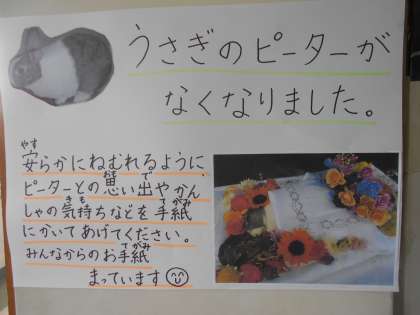 うさぎのピーターが
なくなりました。
安らかにねむれるように、
ピーターとの思い出やかん
しゃの気持ちなどを手紙
にかいてあげてください。
みんなからのお手紙
まっています